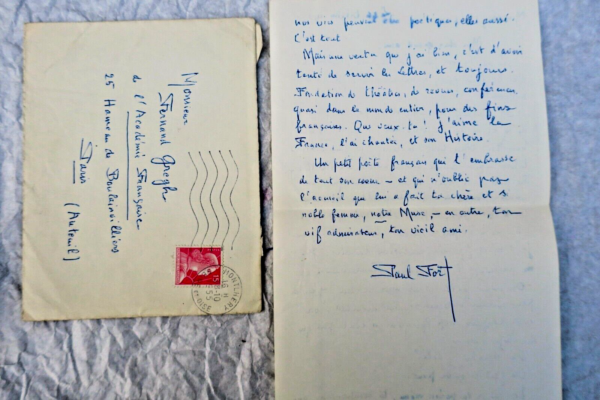 Monsieur
Fernand Gregh
de l'Académie Française
25 Hameau de Boulainvilliers
Paris
(Auteuil)
MONTLHERY
16 H
15-10
1955
nos vies peuvent être poétiques, elles aussi.
C'est tout.
Mais une vertu que j'ai bien, c'est d'avoir
tenté de servir les Lettres, et toujours.
Fondation de théâtres, de revues, conférences
quasi dans le monde entier, pour des fins
françaises. Que veux-tu! j'aime la
France, l'ai chantée, et son Histoire.
Un petit poète français qui t'embrasse
de tout son coeur — et qui n'oublie pas
l'accueil que lui a fait ta chère et si
noble femme, notre Muse, — en outre, ton
vif admirateur, ton vieil ami.
Paul Fort